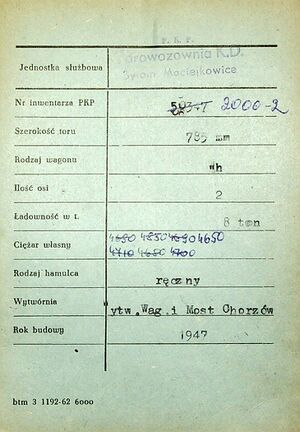 P. K. P.
Parowozownia K.D.
Bytom Maciejkowice
Jednostka służbowa
Nr inwentarza PKP 2000-2
Szerokość toru 785 mm
Rodzaj wagonu Wh
Ilość osi 2
Ładowność w t. 8 ton
4690 4830 4690 4650
Ciężar własny
4710 4650 4700
Rodzaj hamulca ręczny
Wytwórnia ytw. Wag. i Most Chorzów
Rok budowy 1947
btm 3 1192-62 6000